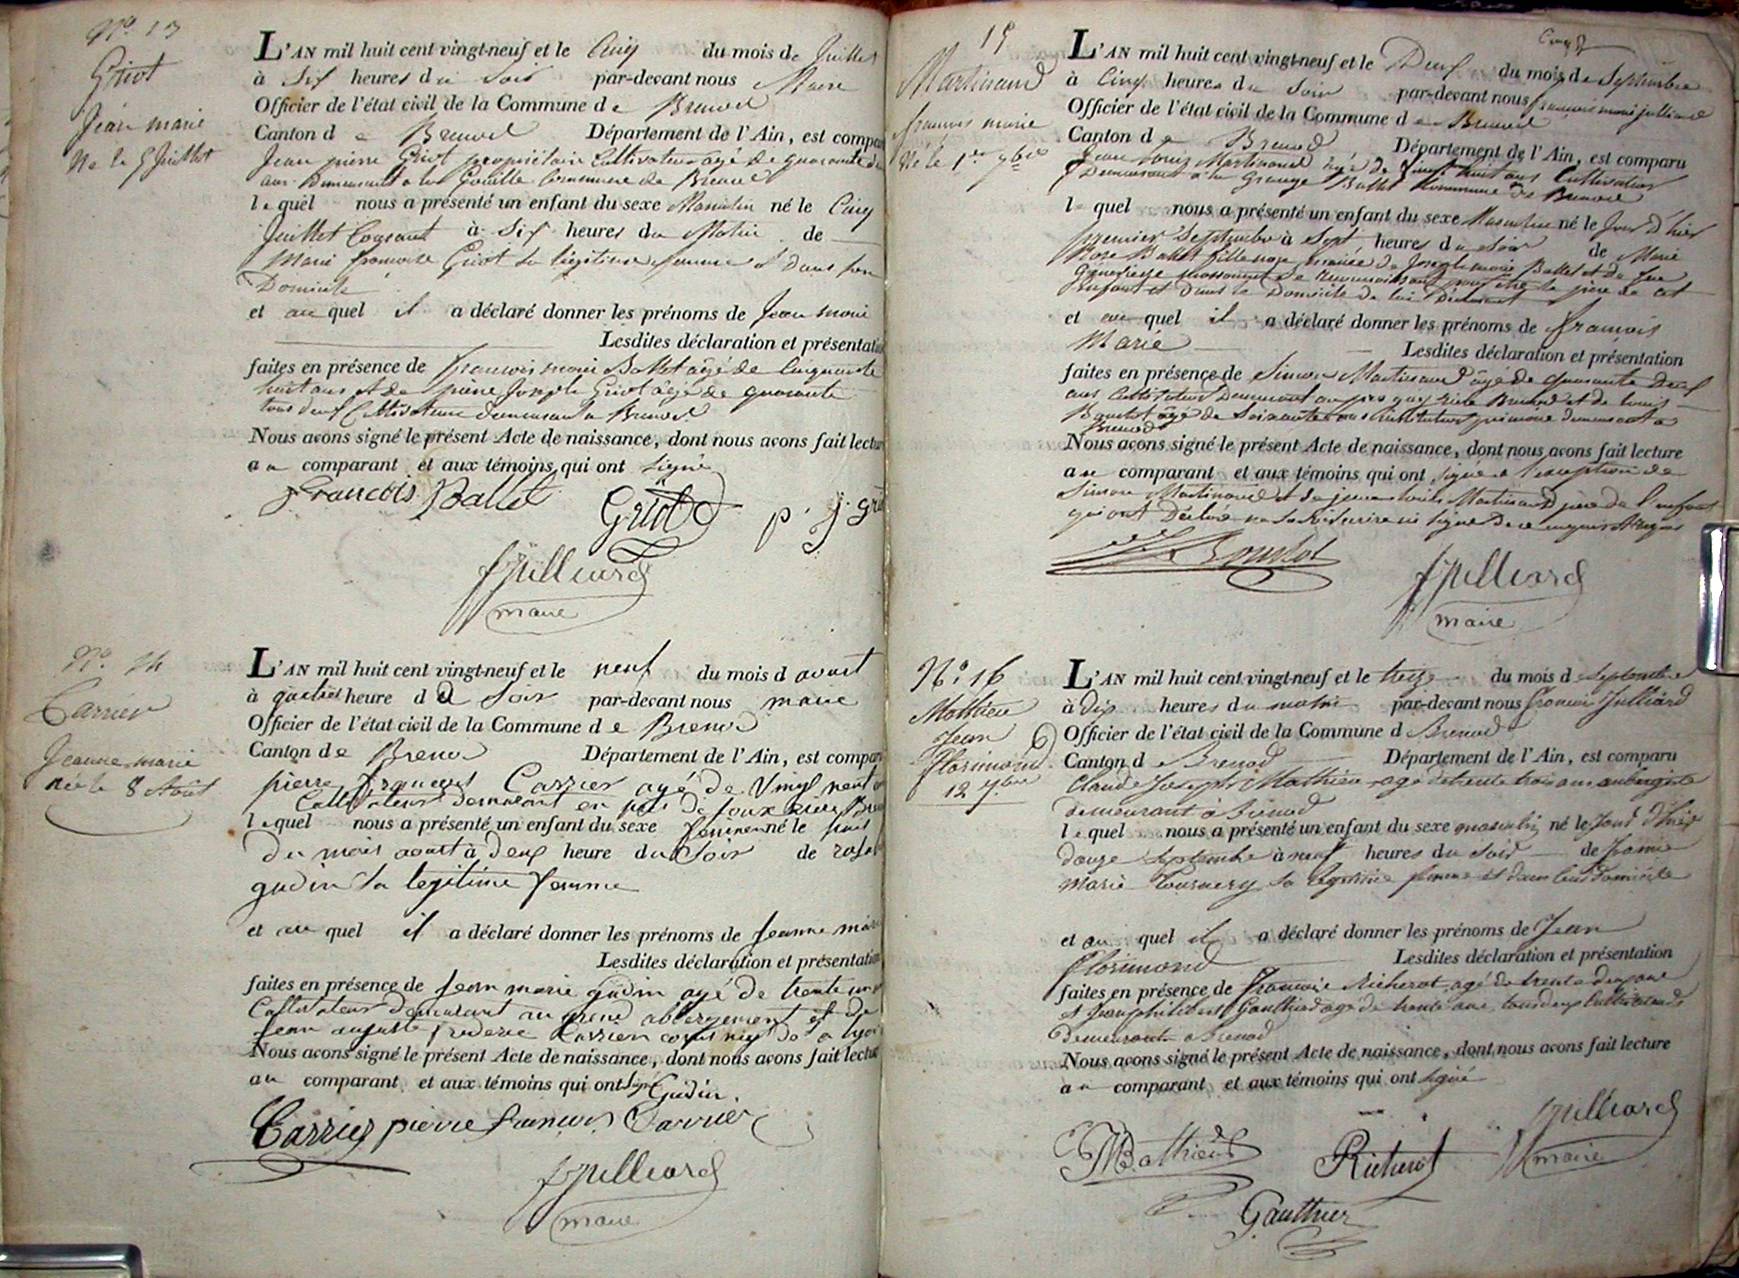 N° 13
Griot
Jean marie
Né le 5 Juillet
L'AN mil huit cent vingt-neuf et le Cinq du mois de Juillet
à Six heures du Soir par-devant nous Maire
Officier de l'état civil de la Commune de Brenod
Canton de Brenod Département de l'Ain, est compa
Jean pierre Griot propriétaire Cultivateur agé de quarante
ans Demeurant a la Gouille Commune de Brenod
lequel nous a présenté un enfant du sexe Masculin né le Cinq
Juillet Courant à Six heures du Matin de
Marie françoise Griot sa légitime femme et dans son
Domicile
et au quel il a déclaré donner les prénoms de Jean marie
Lesdites déclaration et présentation
faites en présence de francois marie Ballet âgé de Cinquante
huit ans et de pierre Joseph Griot âgé de quarante
tous deux Cultivateurs demeurant a Brenod
Nous avons signé le présent Acte de naissance, dont nous avons fait lecture
au comparant et aux témoins qui ont signé
Francois Ballet Griot p. j. Griot
f Julliard
maire
N° 14
Carrier
Jeanne marie
née le 8 Août
L'AN mil huit cent vingt-neuf et le neuf du mois d avout
à quatre heure du Soir par-devant nous maire
Officier de l'état civil de la Commune de Brenod
Canton de Brenod Département de l'Ain, est compar
pierre françois Carrier agé de vingt neuf
Cultivateur demeurant en
lequel nous a présenté un enfant du sexe feminen né le huit
du mois avout à deux heure du Soir de
gudin sa legitime femme
et au quel il a déclaré donner les prénoms de Jeanne marie
Lesdites déclaration et présentation
faites en présence de Jean marie gudin agé de trente
Cultivateur demeurant au grand abbergement et de
Jean auguste frederic Carrier
Nous avons signé le présent Acte de naissance, dont nous avons fait lecture
au comparant et aux témoins qui ont signé Gudin.
Carrier pierre francois Carrier
f Julliard
maire
15
Martinand
francois marie
Né le 1er 7bre
L'AN mil huit cent vingt-neuf et le Deux du mois de Septembre
à Cinq heures du Soir par-devant nous francois marie julliard
Officier de l'état civil de la Commune de Brenod
Canton de Brenod Département de l'Ain, est comparu
Jean Louis Martinand âgé de vingt huit ans Cultivateur
Demeurant a la Grange Ballet Commune de Brenod
lequel nous a présenté un enfant du sexe Masculin né le Jour d'hier
premier Septembre à Sept heures du Soir de Marie
Roze Ballet fille de Joseph marie Ballet et de feu
enfant et dans le Domicile de lui Déclarant
et au quel il a déclaré donner les prénoms de francois
Marie Lesdites déclaration et présentation
faites en présence de Simon Martinand âgé de quarante Deux
ans Cultivateur Demeurant Brenod et de Louis
âgé de Soixante ans instituteur primaire demeurant a
Brenod
Nous avons signé le présent Acte de naissance, dont nous avons fait lecture
au comparant et aux témoins qui ont signé a l'exception de
Simon Martinand et de jean louis Martinand père de l'enfant
qui ont Déclaré ne Savoir Ecrire ni Signer De ce enquis et requis
f Julliard
maire
N° 16
Mathieu
Jean
florimond
12 7bre
L'AN mil huit cent vingt-neuf et le treize du mois d septembre
à dix heures du matin par-devant nous francois Julliard
Officier de l'état civil de la Commune d Brenod
Canton d Brenod Département de l'Ain, est comparu
Claude Joseph Mathieu agé de trente trois ans aubergiste
demeurant à Brenod
lequel nous a présenté un enfant du sexe masculin né le Jour d'hier
douze Septembre à neuf heures du Soir de
marie Tournery sa legitime femme et dans leur domicile
et au quel il a déclaré donner les prénoms de Jean
florimond Lesdites déclaration et présentation
faites en présence de francois Richerot agé de trente deux ans
et Jean philibert Gauthier agé de trente ans tous deux Cultivateurs
demeurant a Brenod
Nous avons signé le présent Acte de naissance, dont nous avons fait lecture
au comparant et aux témoins qui ont signé
Mathieu Richerot f Julliard
maire
Gauthier